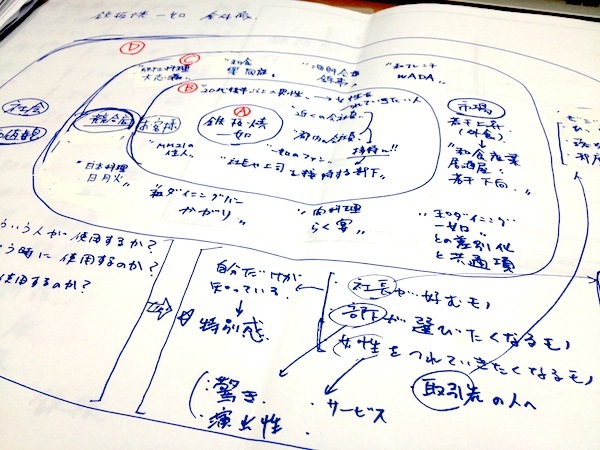 鉄板焼 一如 全体像.
D
C
B
A
社会
価値観
競合店
お客様
鉄板焼
一如
市場
若干上昇
(外食)
"和食産業
居酒屋
若干下向."
"和フレンチ
WADA"
"30代後半以上の男性" → 女性を
つれていきたい人
"近くの会社員
"都内の会社員
接待に!!
"一如のファン"
"社長や上司を接待する部下"
"MM21の
住人"
"日本料理
日月火"
"和ダイニングバー
かがり"
"肉料理
らく客"
"和ダイニング
一如"
との差別化
と共通項
いう人が使用するか?
う時に使用するのか?
使用するのか?
自分だけが
知っている
↓
特別感.
・社長が好むモノ
・部下が選びたくなるモノ
・女性をつれていきたくなるモノ
取引先の人へ
・驚き
・演出性
・サービス